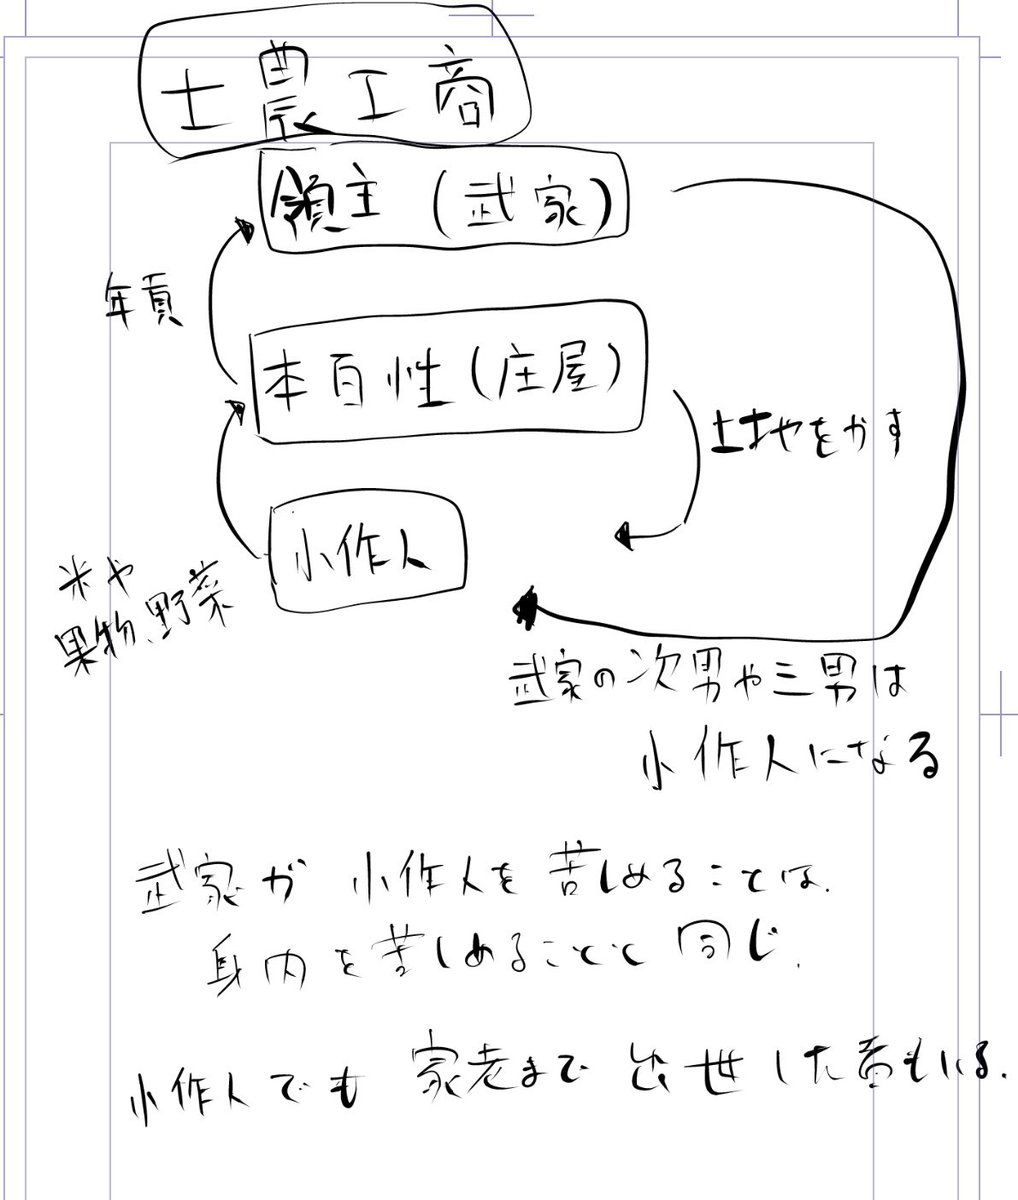 士農工商
領主(武家)
年貢
本百性(庄屋)
土地をかす
小作人
米や
果物、野菜
武家の次男や三男は
小作人になる
武家が小作人を苦しめることは、
身内を苦しめることと同じ、
小作人でも家老まで出世した者もいる、